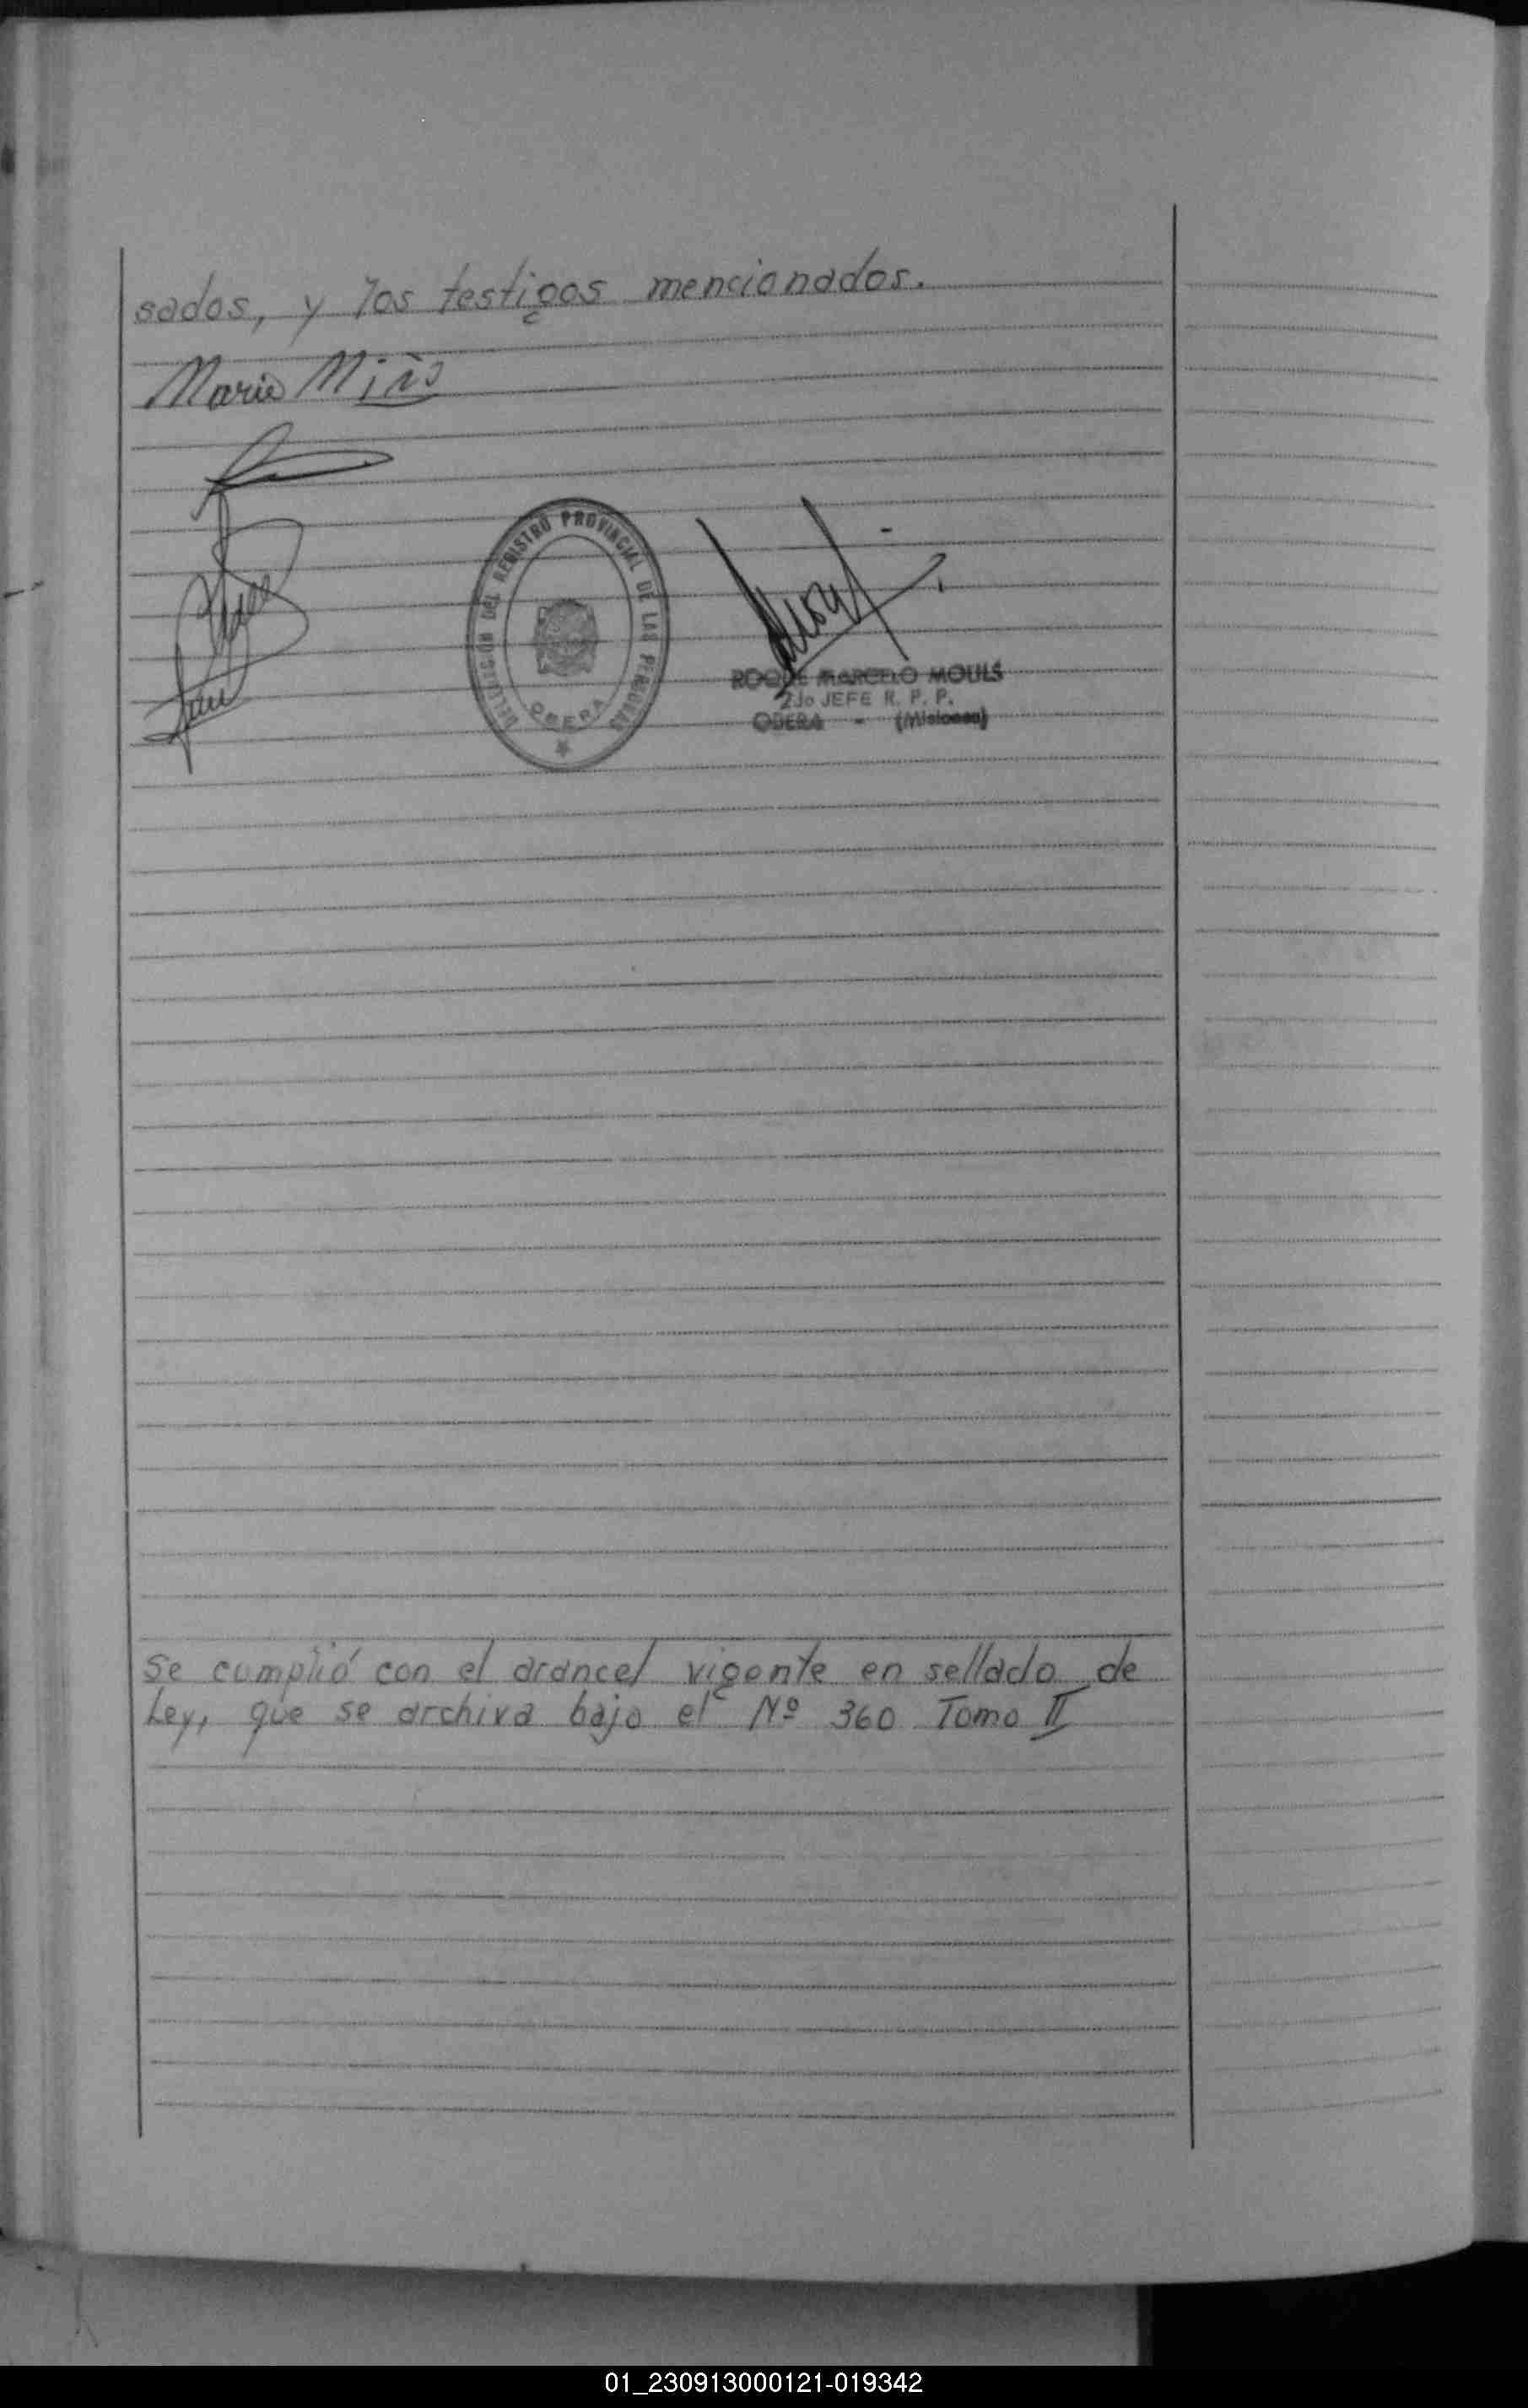 sados, y los testigos mencionados.
Marie Miño
DELEGACION DEL REGISTRO PROVINCIAL DE LAS PERSONAS
OBERA
ROQUE MARCELO MOULS
2do JEFE R. P. P.
OBERA - (Misiones)
Se cumplió con el arancel vigente en sellado de
Ley, que se archiva bajo el Nº 360 Tomo II
01_230913000121-019342